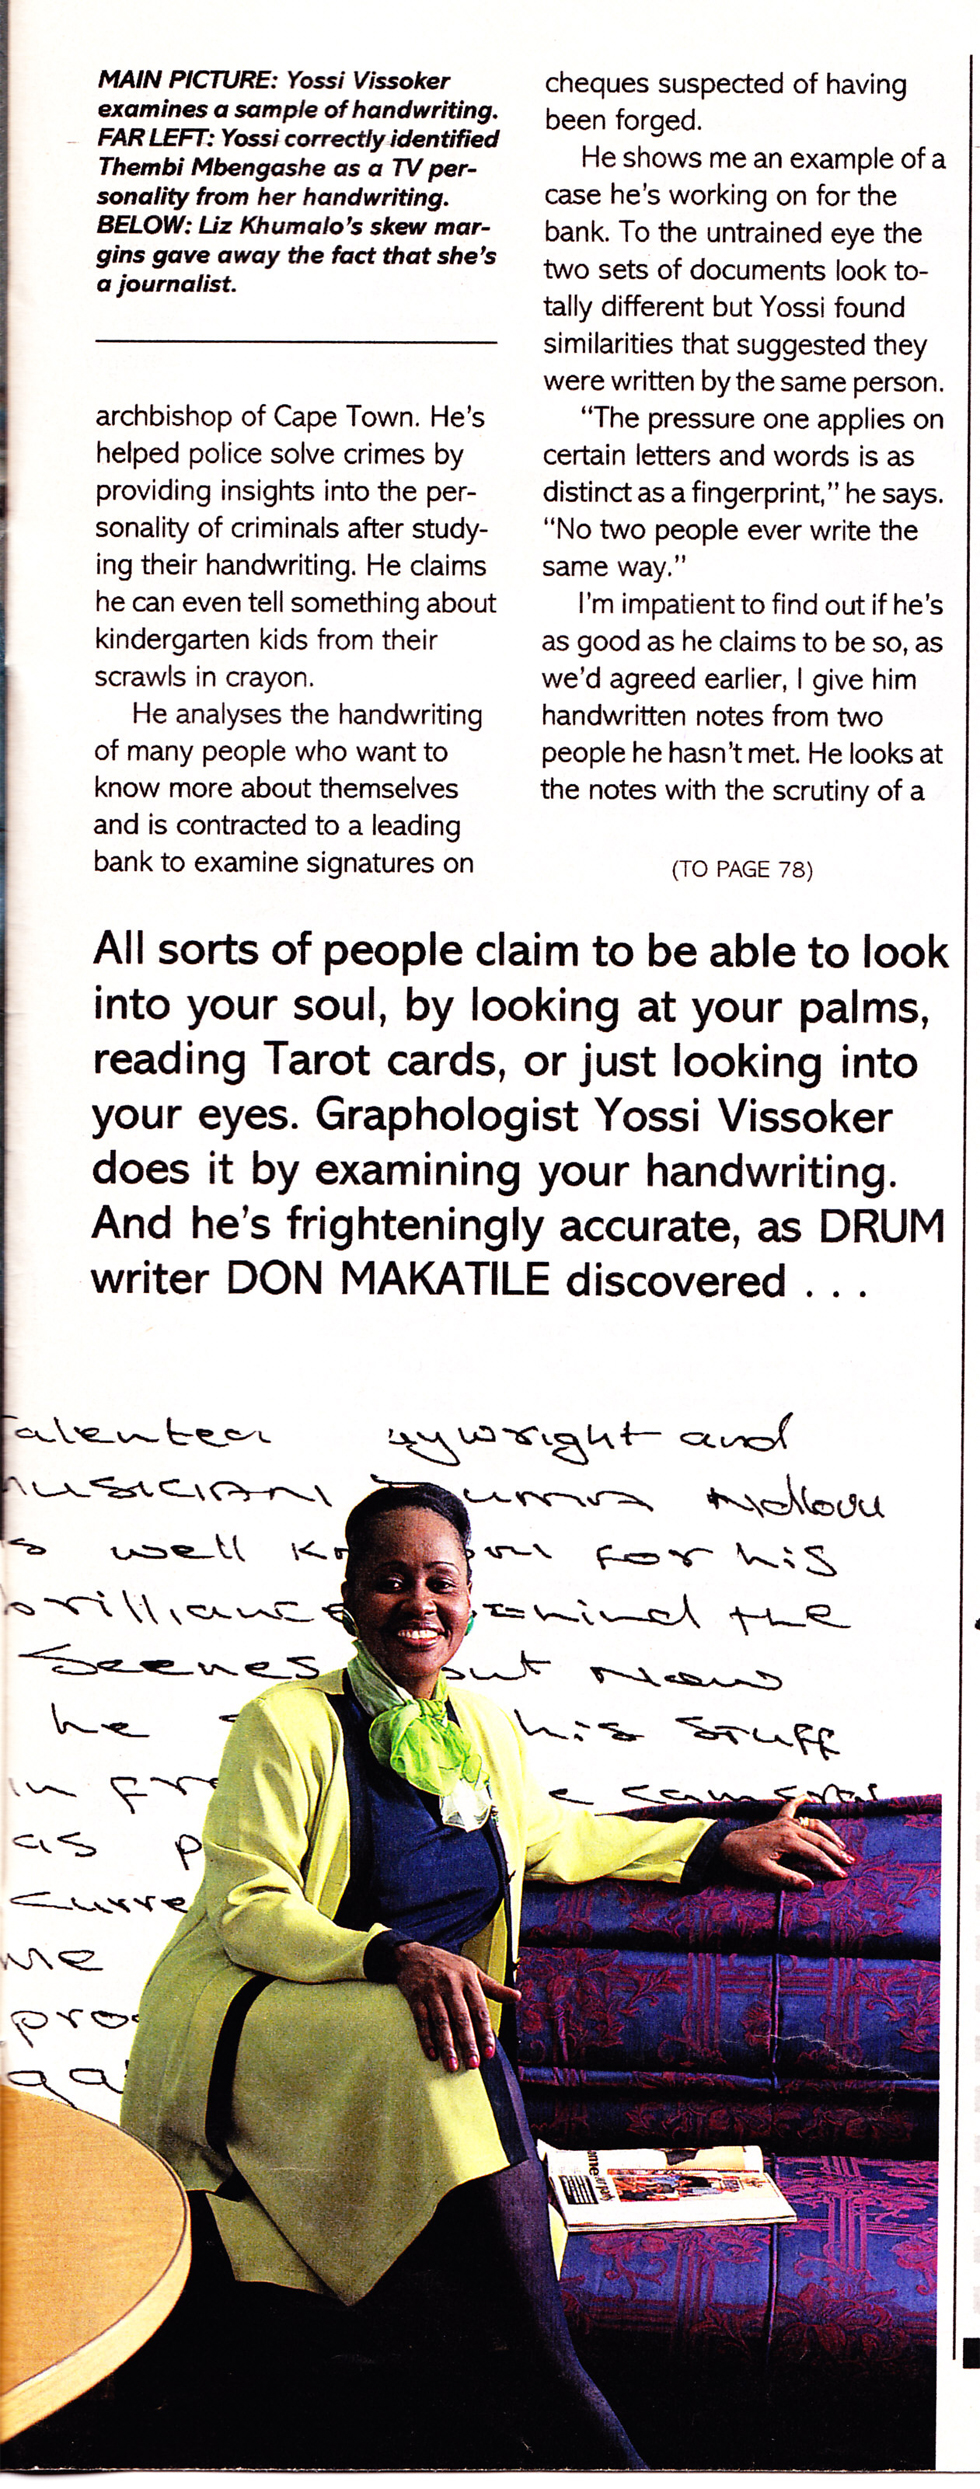 MAIN PICTURE: Yossi Vissoker
examines a sample of handwriting.
FAR LEFT: Yossi correctly identified
Thembi Mbengashe as a TV per-
sonality from her handwriting.
BELOW: Liz Khumalo's skew mar-
gins gave away the fact that she's
a journalist.
archbishop of Cape Town. He's
helped police solve crimes by
providing insights into the per-
sonality of criminals after study-
ing their handwriting. He claims
he can even tell something about
kindergarten kids from their
scrawls in crayon.
He analyses the handwriting
of many people who want to
know more about themselves
and is contracted to a leading
bank to examine signatures on
cheques suspected of having
been forged.
He shows me an example of a
case he's working on for the
bank. To the untrained eye the
two sets of documents look to-
tally different but Yossi found
similarities that suggested they
were written by the same person.
“The pressure one applies on
certain letters and words is as
distinct as a fingerprint,” he says.
“No two people ever write the
same way.”
I'm impatient to find out if he's
as good as he claims to be so, as
we'd agreed earlier, I give him
handwritten notes from two
people he hasn't met. He looks at
the notes with the scrutiny of a
(TO PAGE 78)
All sorts of people claim to be able to look
into your soul, by looking at your palms,
reading Tarot cards, or just looking into
your eyes. Graphologist Yossi Vissoker
does it by examining your handwriting.
And he's frighteningly accurate, as DRUM
writer DON MAKATILE discovered . . .
and
Ndlovu
well for his
the
Scenes but Now
he his Stuff
in
as